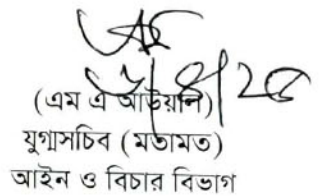 (এম এ আউয়াল)
যুগ্মসচিব (মতামত)
আইন ও বিচার বিভাগ